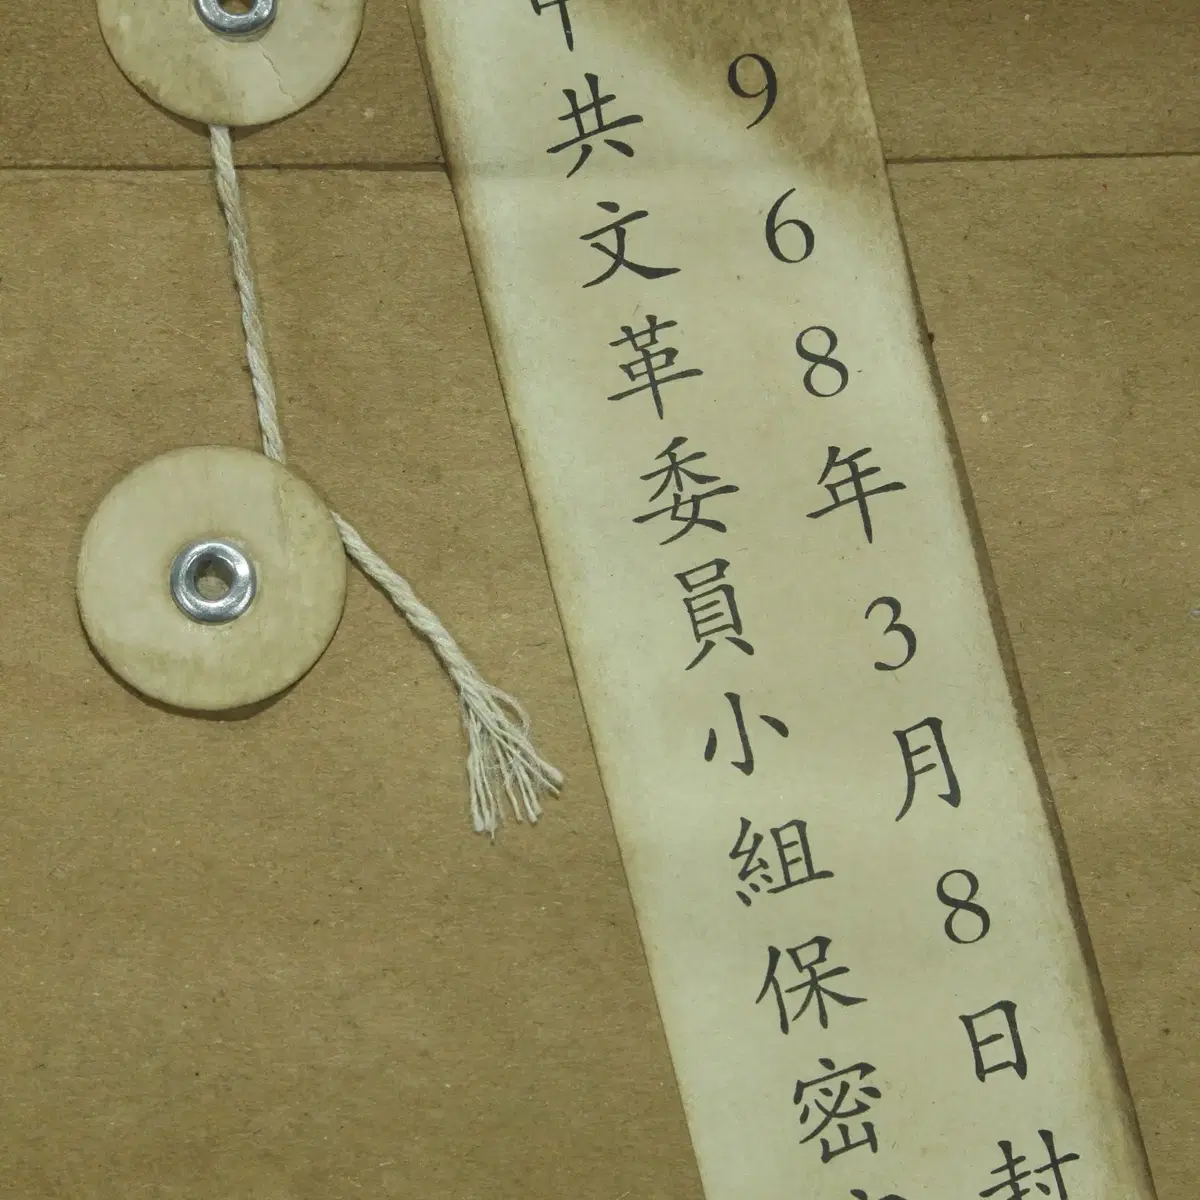 968年3月8日封
中共文革委員小組保密